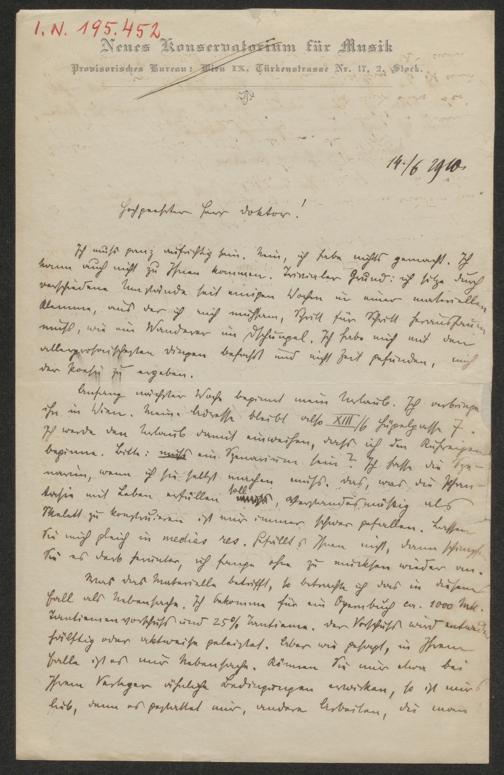 I. N. 195.452
Neues Konservatorium für Musik
Provisorisches Bureau: Wien IX, Türkenstrasse Nr. 17, 2. Stock.
14./6 1910.
Hochgeehrter Herr Doktor!
Ich muss ganz aufrichtig sein. Nein, ich habe nichts gemacht. Ich
kann auch nicht zu Ihnen kommen. Trivialer Grund: ich sitze durch
verschiedene Umstände seit einigen Wochen in einer materiellen
Klemme, aus der ich mich mühsam, Schritt für Schritt heraus
muss, wie ein Wanderer im Dschungel. Ich habe mich mit den
allerprosaischesten Dingen befasst und nicht Zeit gefunden, mich
der Poesie zu ergeben.
Anfang nächster Woche beginnt mein Urlaub. Ich verbringe
ihn in Wien. Meine Adresse bleibt also XIII/6 Hügelgasse 7.
Ich werde den Urlaub damit einweihen, dass ich die
beginne. Bitte: muss ein Szenarium sein? Ich hasse die Sze-
narien, wenn ich sie selbst machen muss. Das, was die Phan-
tasie mit Leben erfüllen soll, verstandesmässig als
Skelett zu konstruieren ist mir immer schwer gefallen. Lassen
Sie mich gleich in medias res. Gefällt's Ihnen nicht, dann schimpfen
Sie es derb herunter, ich fange ohne zu mucksen wieder an.
Was das Materielle betrifft, so betrachte ich das in diesem
Fall als Nebensache. Ich bekomme für ein Opernbuch ca. 1000 Mk.
Tantiemenvorschuss und 25% Tantieme. Der Vorschuss wird entweder
hälftig oder aktweise geleistet. Aber wie gesagt, in Ihrem
Falle ist es mir Nebensache. Können Sie mir etwa bei
Ihrem Verleger ähnliche Bedingungen erwirken, so ist mir's
lieb, denn es gestattet mir, andere Arbeiten, die man